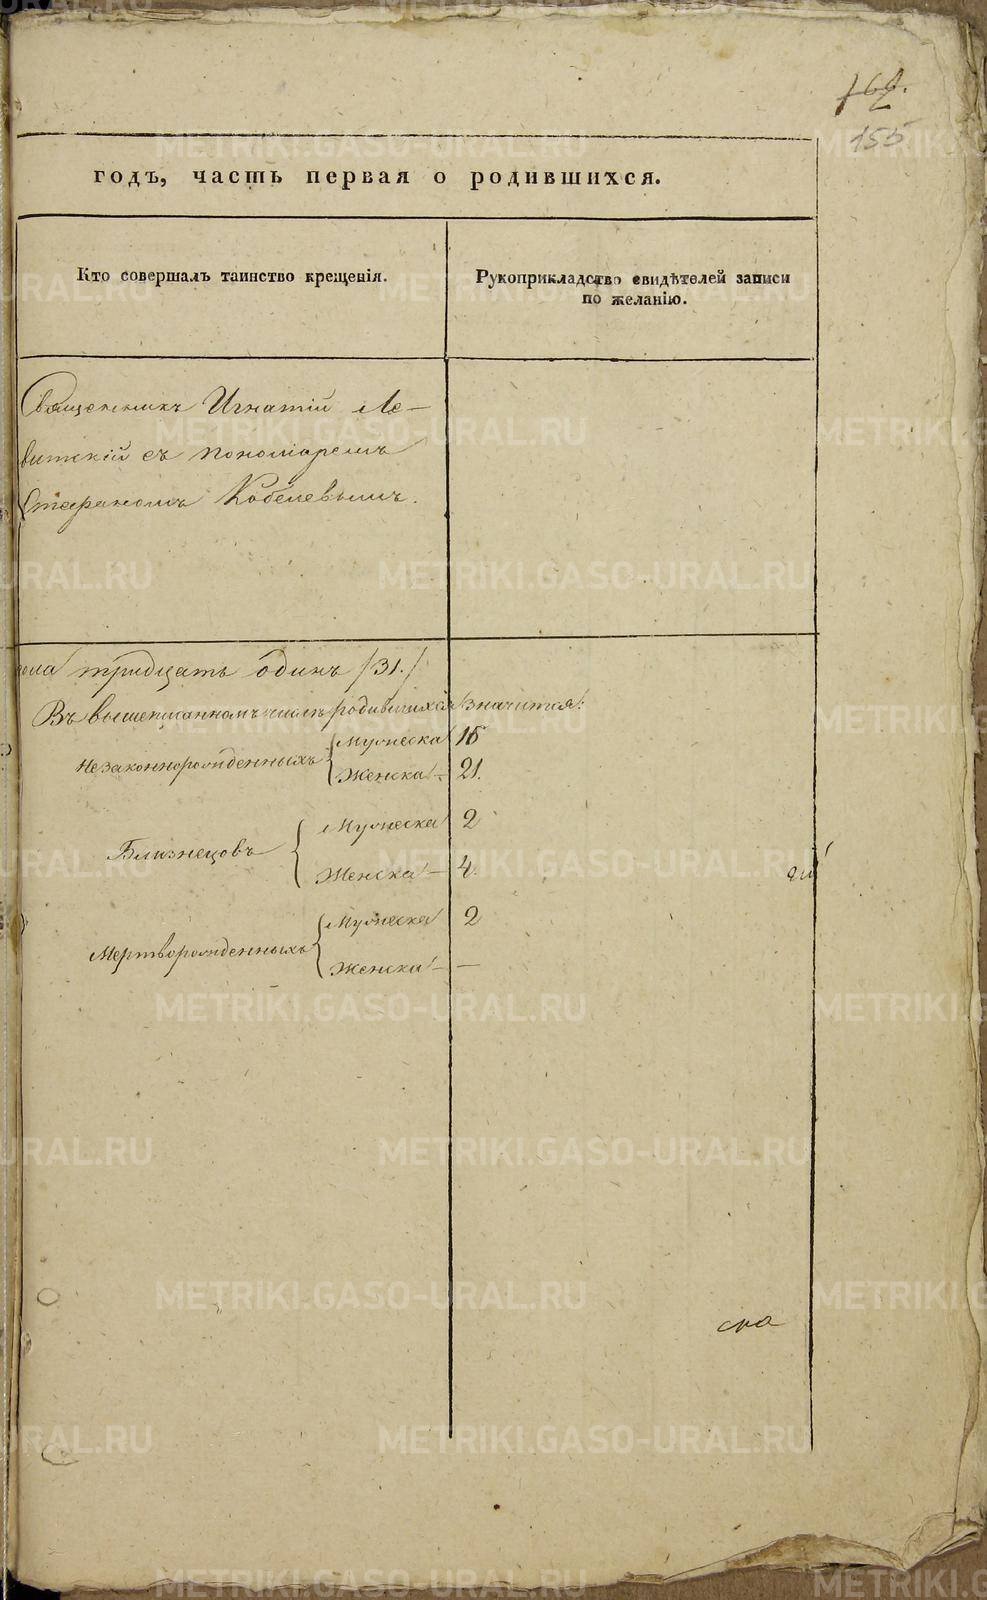 155
годъ, часть первая о родившихся.
Кто совершалъ таинство крещенія.
Рукоприкладство свидѣтелей записи
по желанію.
Священникъ Игнатій Ле-
витскій съ пономаремъ
Стефаномъ Кобелевымъ.
пола тридцать одинъ /31./
Въ вышеписанномъ числѣ родившихся значится:
Незаконнорожденныхъ
Мужеска 15
Женска - 21.
Близнецовъ
Мужеска 2
Женска - 4.
Мертворожденныхъ
Мужеска 2
Женска - —
METRIKI.GASO-URAL.RU